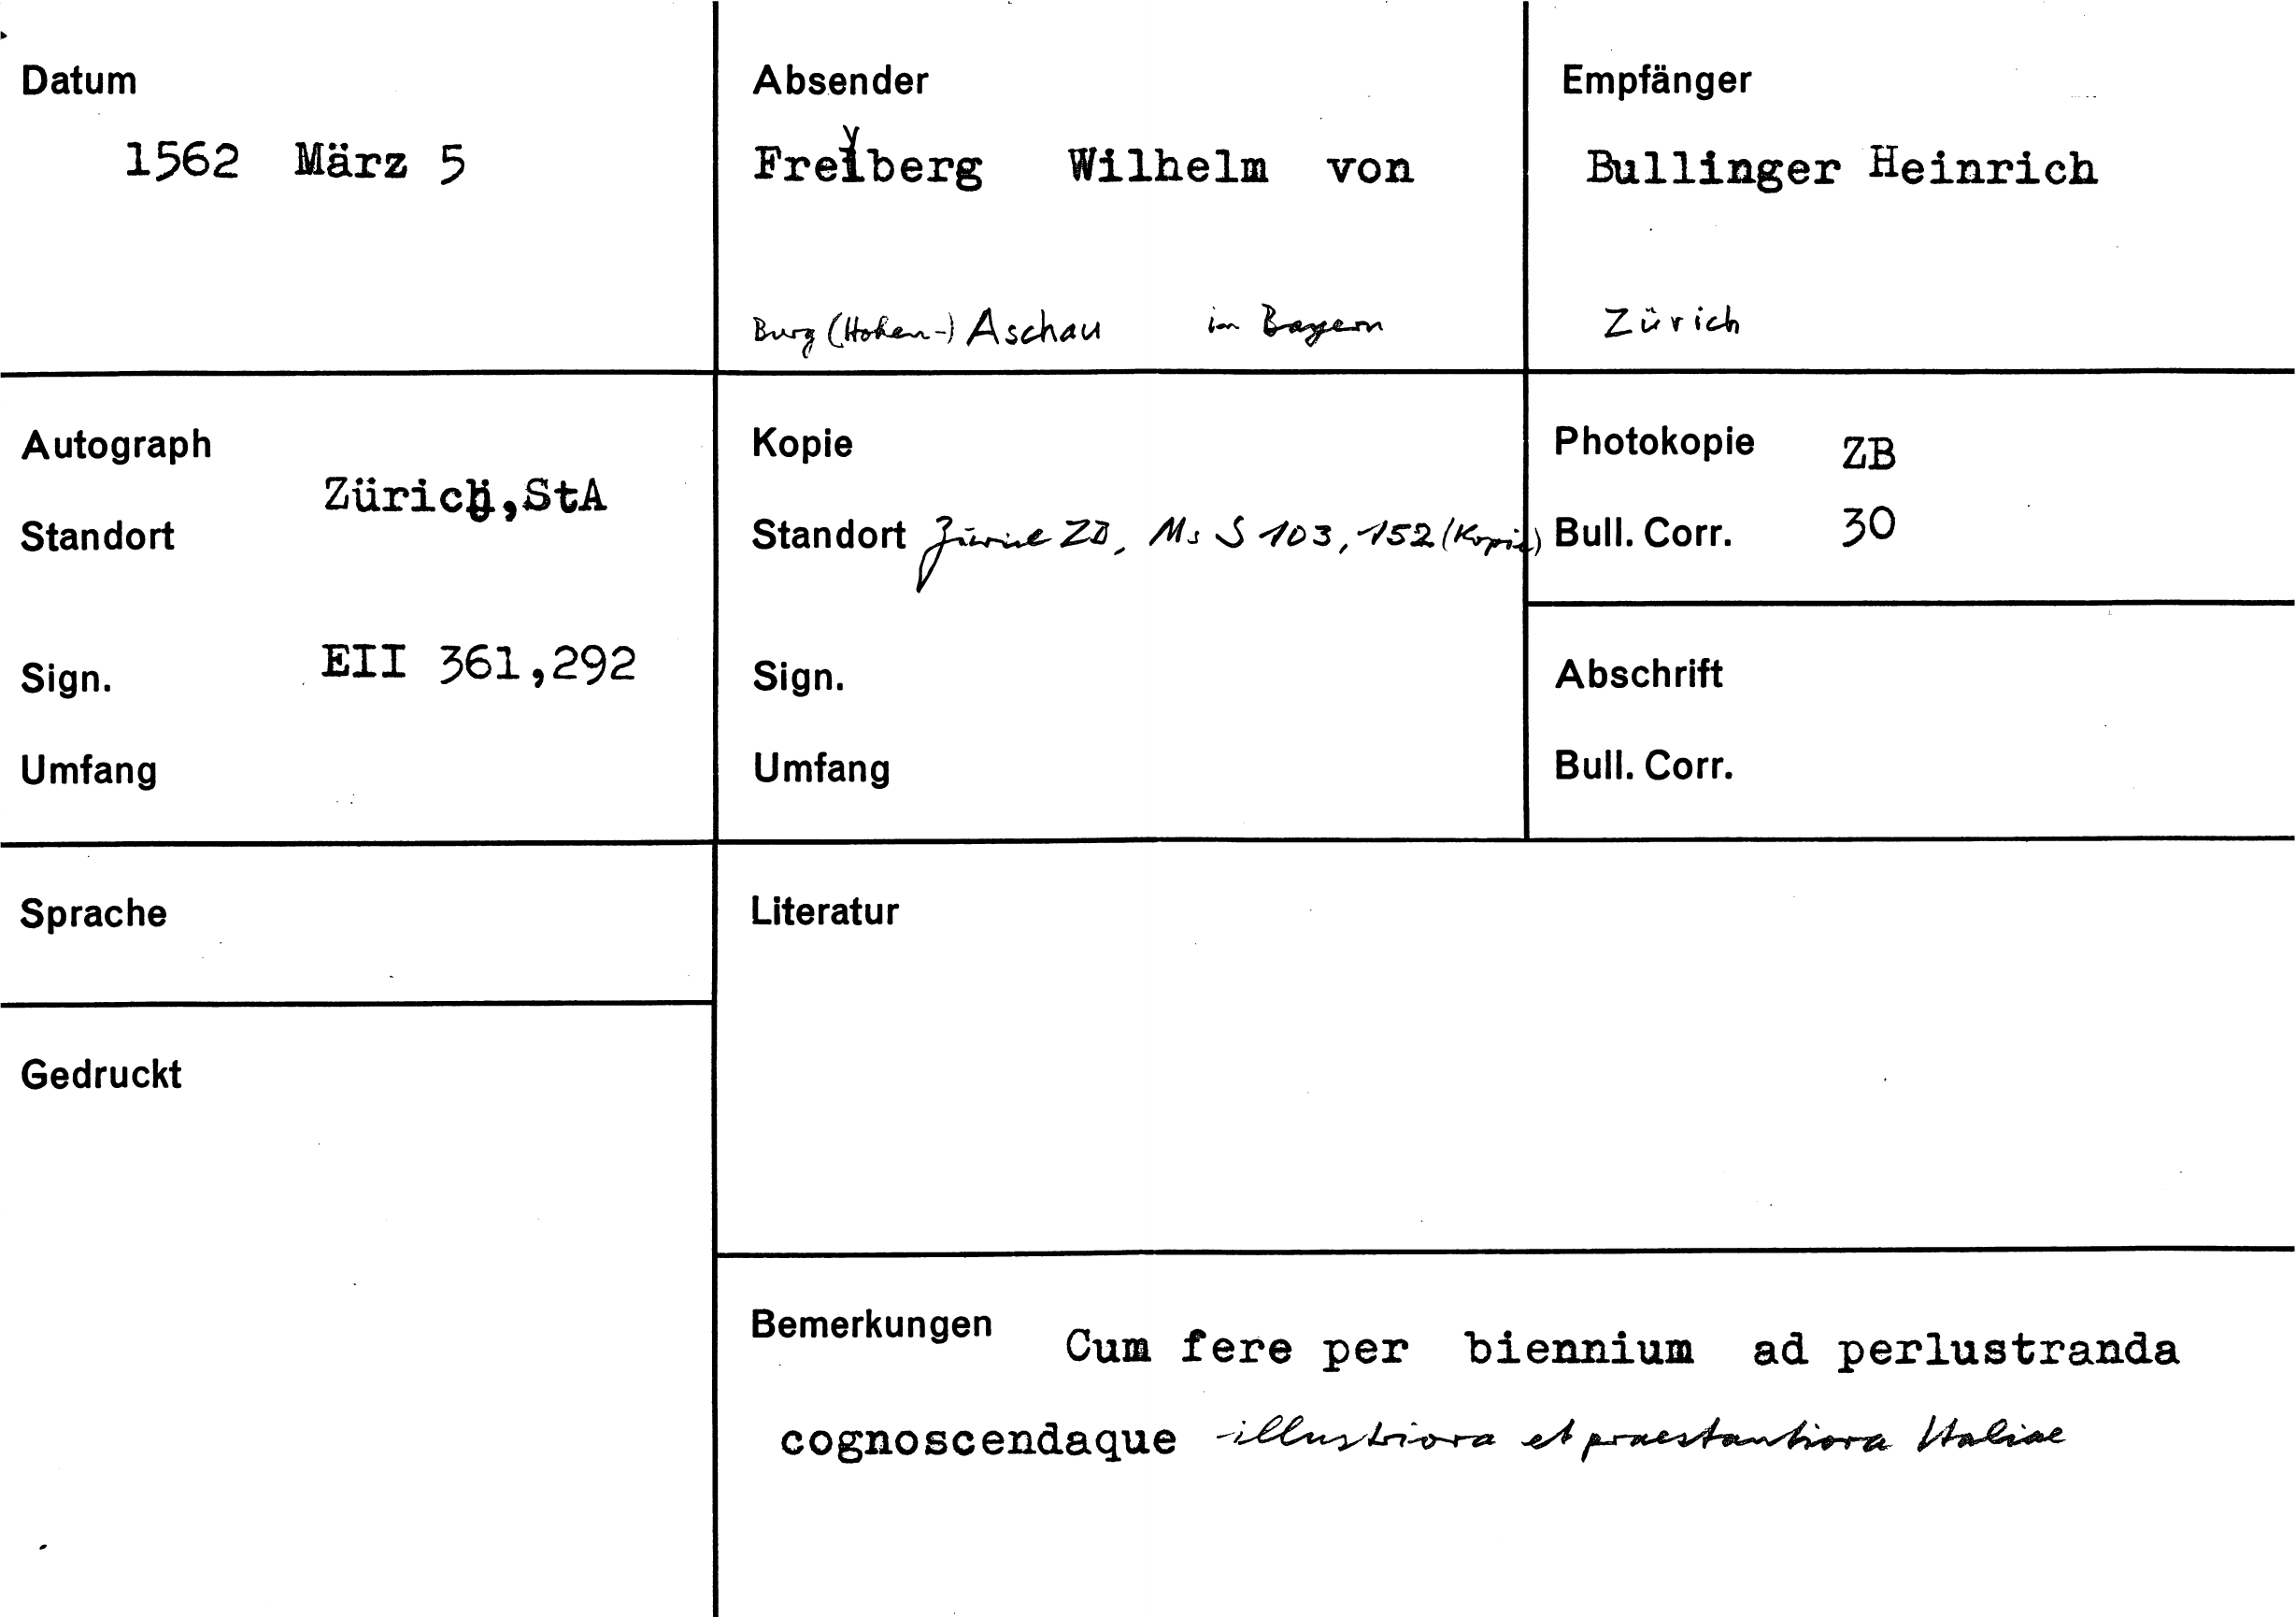 Datum
1562 März 5
Absender
Freyberg Wilhelm von
Burg (Hohen-) Aschau in Bayern
Empfänger
Bullinger Heinrich
Zürich
Autograph
Zürich,StA
Standort
Sign. EII 361,292
Umfang
Kopie
Standort Zürich ZB, Ms S 103, 152 (Kopie)
Sign.
Umfang
Photokopie ZB
Bull. Corr. 30
Abschrift
Bull. Corr.
Sprache
Literatur
Gedruckt
Bemerkungen Cum fere per biennium ad perlustranda
cognoscendaque illustriora et praestantiora Italiae